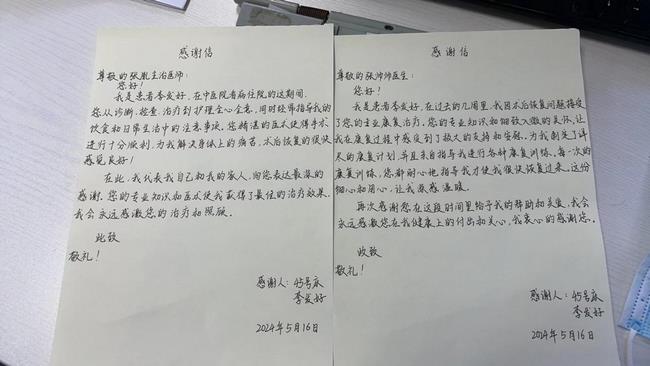 感谢信
尊敬的张胤主治医师:
您好!
我是患者李发好,在中医院看病住院的这期间,
您从诊断、检查、治疗到护理全心全意,同时经常指导我的
饮食和日常生活中的注意事项。您精湛的医术使得手术
进行十分顺利,为我解决身体上的病苦,术后恢复的很快
感觉良好!
在此,我代表我自己和我的家人,向您表达最深的
感谢,您的专业知识和医术使我获得了最佳的治疗效果,
我会永远感激您的治疗和照顾。
此致
敬礼!
感谢人:45号床
李发好
2024年5月16日
感谢信
尊敬的张帅帅医生:
您好!
我是患者李发好,在过去的几周里,我因术后恢复问题接受
了您的专业康复治疗。您的专业知识和细致入微的关怀,让
我在康复过程中感受到了极大的支持和安慰。为我制定了详
尽的康复计划,并且亲自指导我进行各种康复训练。每一次的
康复训练,您都耐心地指导我才使我很快恢复过来。这份
细心和用心,让我感感温暖。
再次感谢您在这段时间里给予我的帮助和关爱,我会
永远感激您在我健康上的付出和关心,我衷心的感谢您。
此致
敬礼!
感谢人:45号床
李发好
2024年5月16日